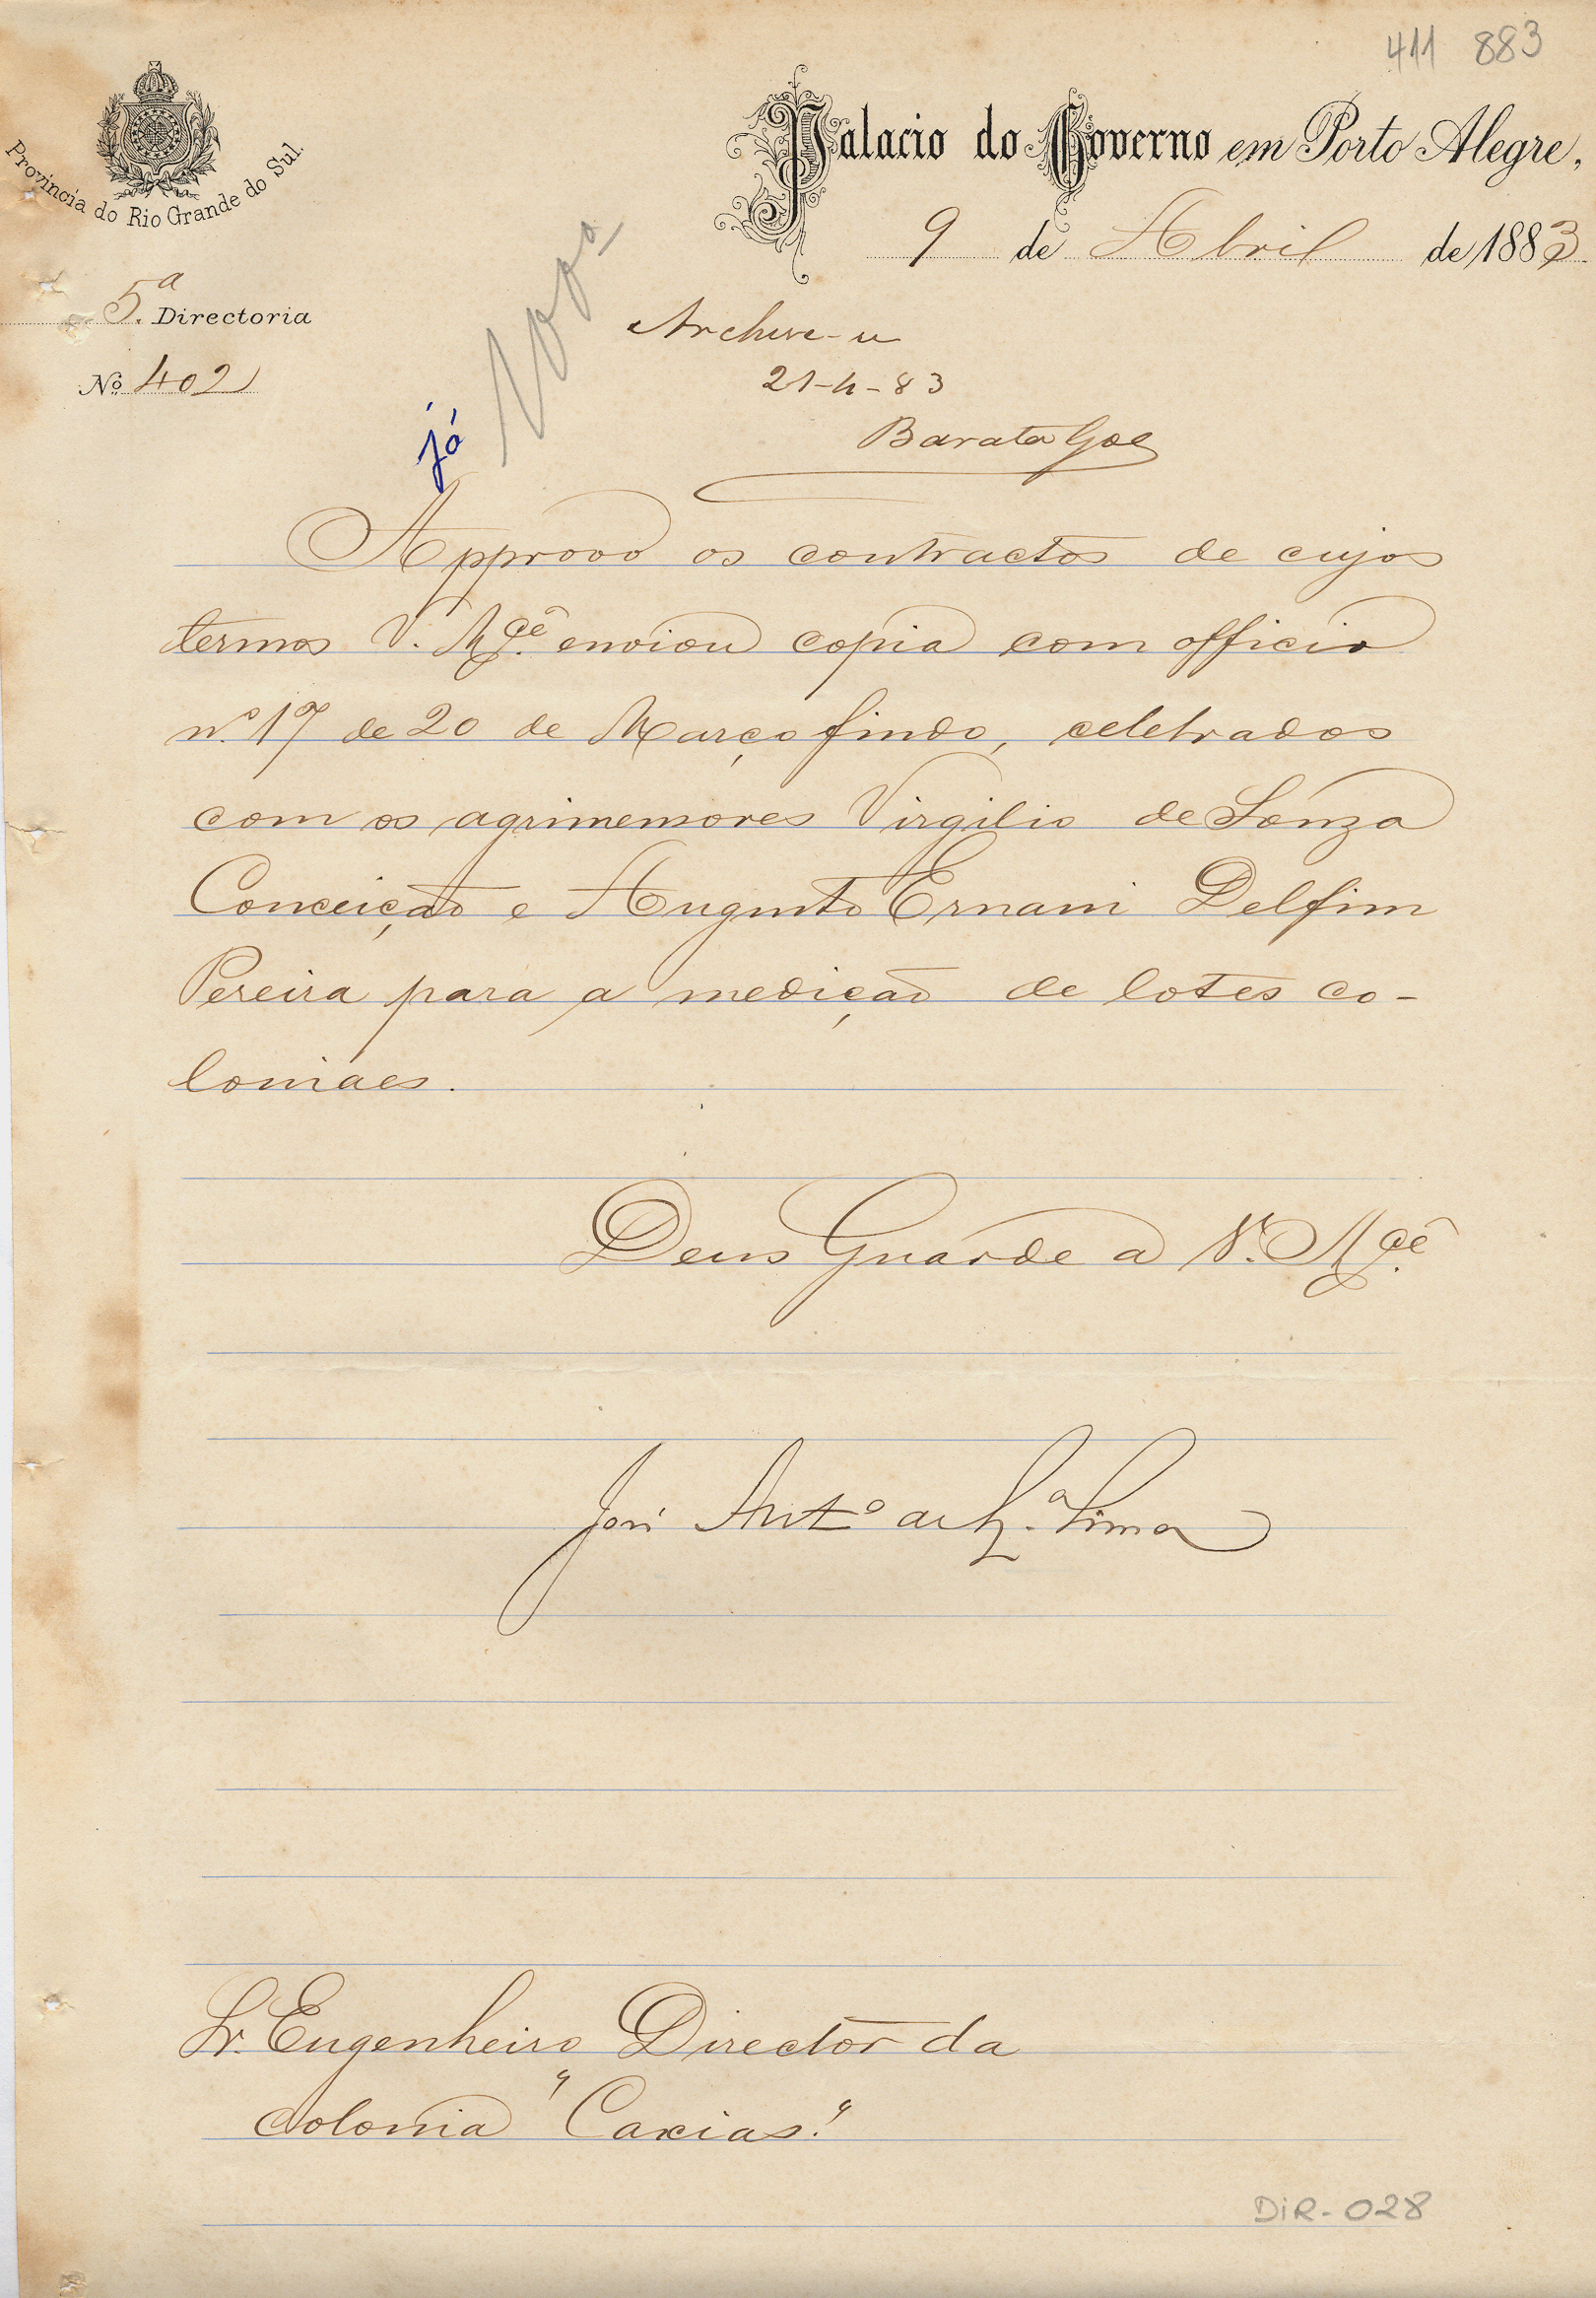 411 883
Provincia do Rio Grande do Sul.
Palacio do Governo em Porto Alegre,
9 de Abril de 1883.
5.ª Directoria
Nº 402
Archive-se
21-4-83
Barata Góes
já
Approvo os contractos de cujos
termos V. M.cê enviou copia com officio
nº 17 de 20 de Março findo, celebrados
com os agrimensores Virgilio de Souza
Conceição e Augusto Ernani Delfim
Pereira para a medição de lotes co-
loniaes.
Deus Guarde a V. M.cê
José Ant.º de Lima
Sr. Engenheiro Director da
colonia "Caxias."
DIR-028